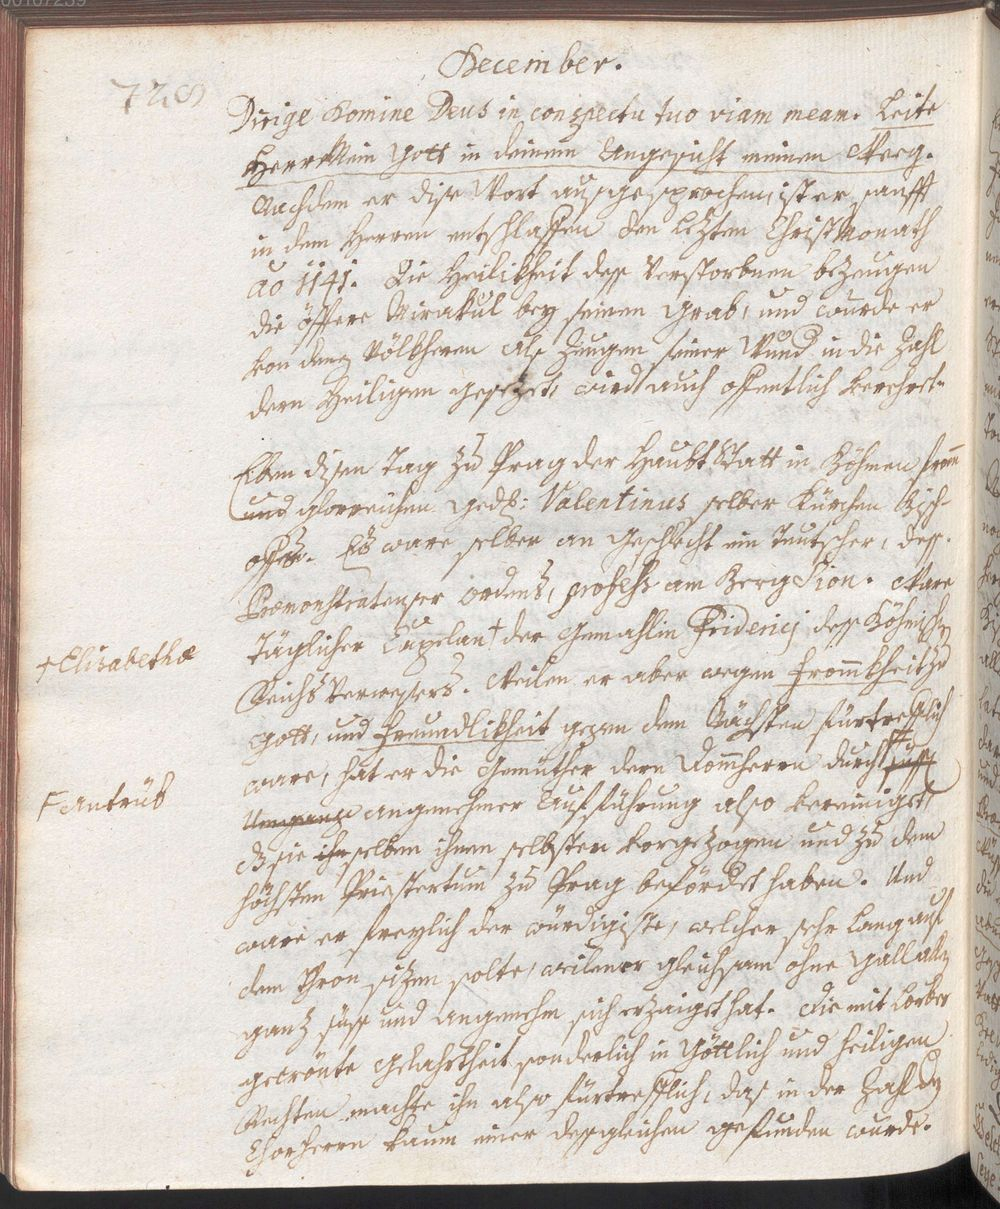 00107259
December.
728
Dirige Domine Deus in conspectu tuo viam meam. Leite
Herr Mein Gott in deinem Angesicht meinen Weeg.
Nachdem er dise Wort ausgesprochen, ist er sanfft
in dem Herren entschlaffen den lezten Christmonath
ao 1141. Die Heilikheit dess Verstorbnen bezeugen
die öffere Mirakul bey seinem Grab, und wurde er
von denen Völkheren als Zeugen seiner Wund in die Zahl
deren Heiligen gesezet, wird auch offentlich verehret.
Eben disen Tag zu Prag der Haubt Statt in Böhmen
und glorreichen Gedß: Valentinus selber Kürchen Bisch-
offen. Es ware selber an Geschlecht ein Teutscher, dess
Praemonstratenser Ordens, Profess am Berg Sion. Ware
täglicher Capelan + der Gemahlin Friderici dess Böhmischen
Reichs Verwesers. Weilen er aber wegen Frommkheit zu
+ Elisabethae
Gott, und Freundlikheit gegen dem Nächsten fürtrefflich
ware, hat er die Gemüther deren Dommherren durch
F Antrüb
Umgang angenehmer Aufführung also vereiniget,
dz sie ihn selben ihnen selbsten vorgezogen und zu dem
höchsten Priestertum zu Prag befördet haben. Und
ware er freylich der würdigiste, welcher sehr lang auf
dem Thron sizen solte, weilen er gleichsam ohne Gall allen
ganz süss und angenehm sich erzaiget hat. Die mit Lorber
gecrönte Glehrtheit sonderlich in Göttlich und heiligen
Rechten machte ihn also fürtrefflich, das in der Zahl der
Chorherren kaum einer dessgleichen gefunden wurde.